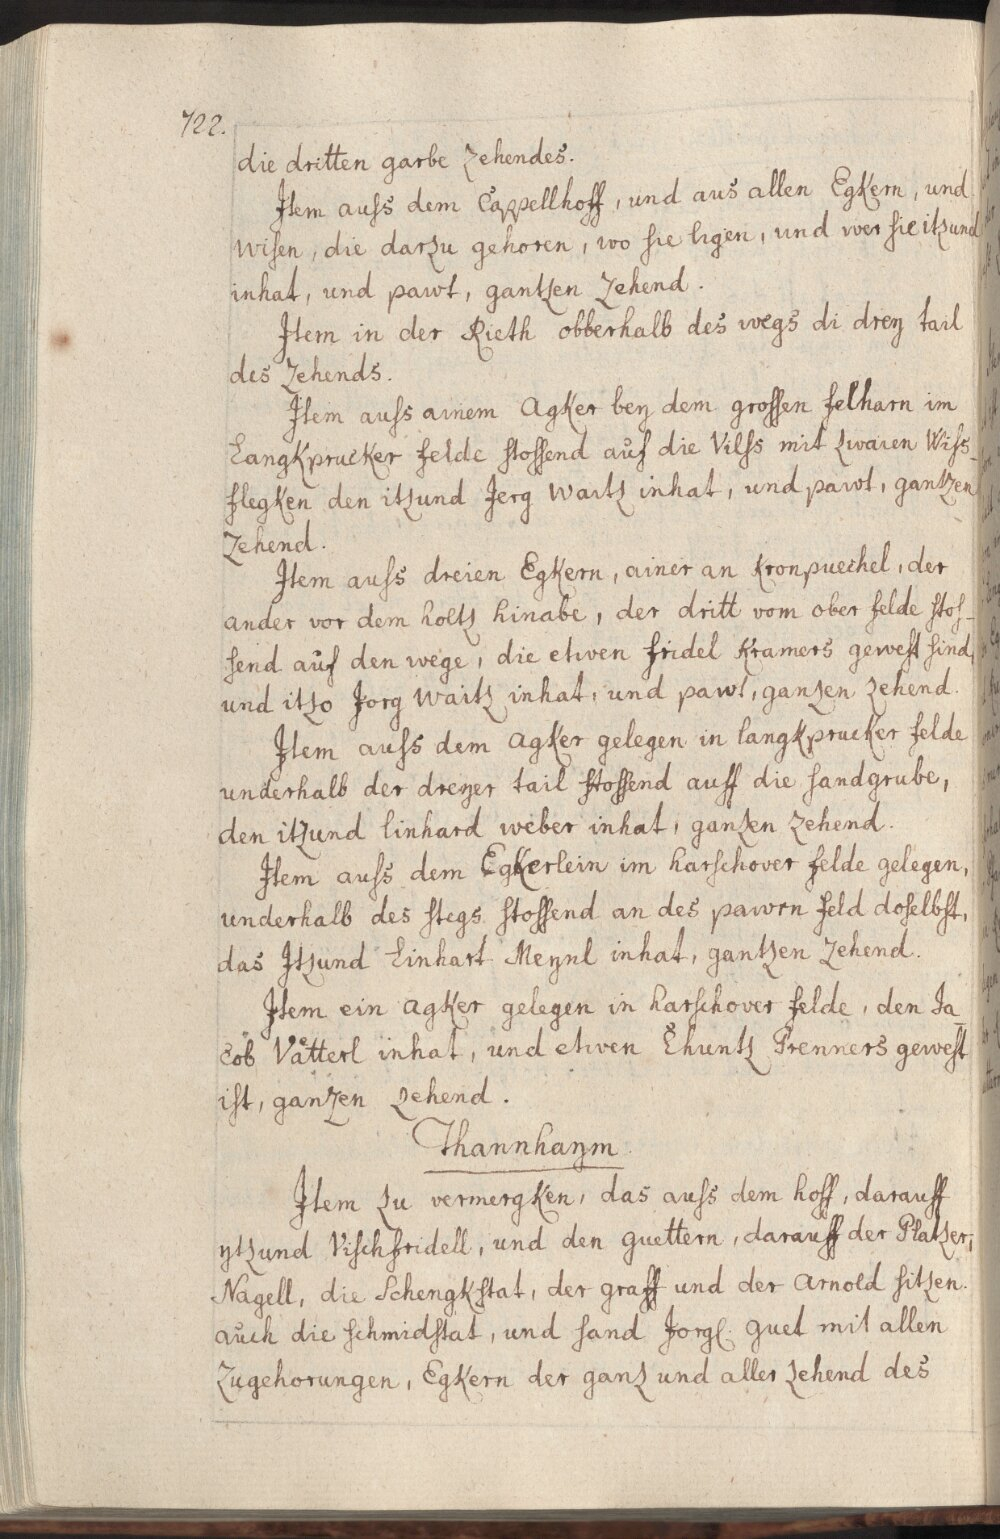 722.
die dritten garbe Zehendes.
Item auss dem Cappellhoff, und aus allen Egkern, und
wisen, die darzu gehoren, wo sie ligen, und wer sie itzund
inhat, und pawt, gantzen Zehend.
Item in der Rieth obberhalb des wegs di drey tail
des Zehends.
Item auss ainem Agker bey dem grossen felharn im
Langkprucker felde stossend auf die Vilss mit zwaien Wiss-
flegken den itzund Jerg Waitz inhat, und pawt, gantzen
Zehend.
Item auss dreien Egkern, ainer an Kronpuechel, der
ander vor dem holtz hinabe, der dritt vom ober felde stos-
send auf den wege, die etwen fridel Kramers gewest sind,
und itzo Jorg Waitz inhat, und pawt, ganzen zehend.
Item auss dem Agker gelegen in langkprucker felde
underhalb der dreyer tail stossend auff die sandgrube,
den itzund linhard weber inhat, ganzen zehend.
Item auss dem Egkerlein im harschover felde gelegen,
underhalb des stegs stossend an des pawrn feld doselbst,
das Itzund Linhart Meynl inhat, gantzen Zehend.
Item ein Agker gelegen in harschover felde, den Ja-
cob Vätterl inhat, und etwen Chuntz Prenners gewest
ist, ganzen zehend.
Thannhaym
Item zu vermergken, das auss dem hoff, darauff
ytzund Vischfridell, und den guettern, darauff der Platzer,
Nagell, die Schengkstat, der graff und der Arnold sitzen.
auch die schmidstat, und sand Jorgl. guet mit allen
Zugehorungen, Egkern der ganz und aller zehend des